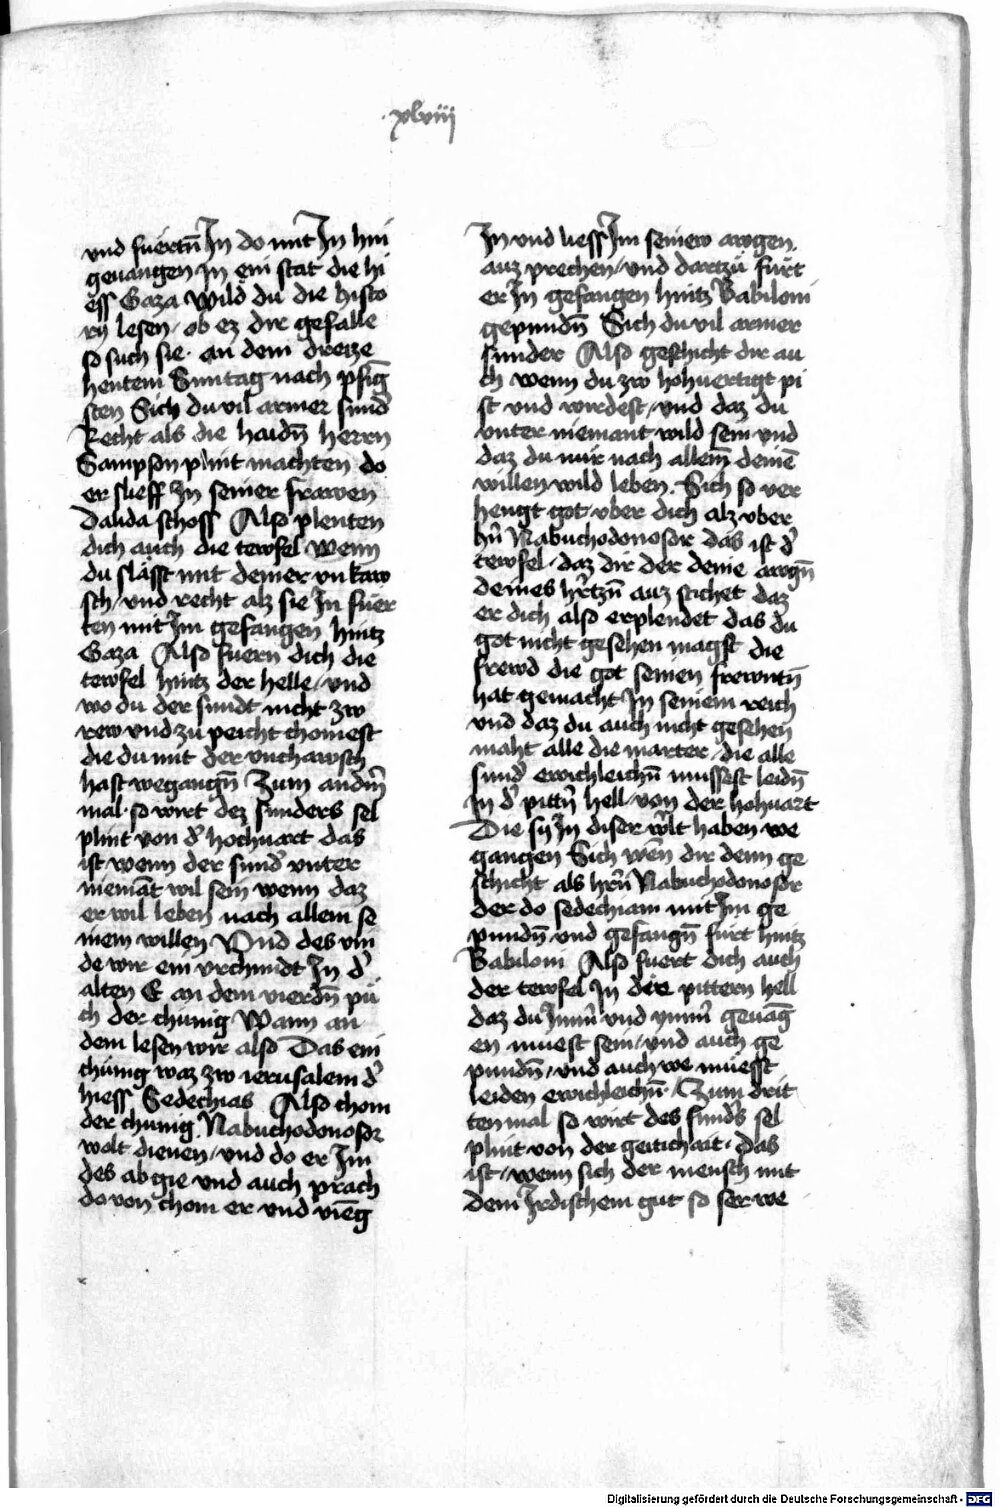 xlviii
vnd fuertn̄ In do mit In hin
geuangen in ein stat die hi
ess Gaza Wild du die histo
rÿ lesen / ob ez dir gefalle
so such sie · an dem dreize
hentem Sunntag nach pfīg
sten Sich du vil armer sund̾
Recht als die haidn̄ herrn
Sampson plint machten do
er slieff In seiner frawen
Dalida schoss Also plenten
dich auch die tewfel / Wenn
du släfst mit deiner vnkaw
sch / vnd recht alz sie In füer
ten mit Im gefangen hintz
Gaza Also fuern dich die
tewfel hintz der helle / vnd
wo du der sundt nicht zw
rew vnd zü peicht chomest
die du mit der vnchawsch
hast wegangn̄ Zum andm̄
mal · so wirt dez sunders sel
plint von d̾ hochuart das
ist wenn der sund̾ vnter
niemāt wil sein wenn daz
er wil leben nach allem se
niem willen Vnd des vin
de wir ein vrchundt In d̾
alten E an dem vierdn̄ pü
ch der chünig Wann an
dem lesen wir also Das ein
chünig waz zw ierusalem d̾
hiess Sedechias Also chom
der chunig Nabuchodonosor
wolt dienen / vnd do er Im
des abgie vnd auch prach
do von chom er vnd vieng
In vnd liess Im seinew awgen
auz prechen / vnd dartzü fürt
er In gefangen hintz Babiloni
gepundn̄ Sich du vil armer
sunder Also geschicht dir au
ch wenn du zw hohuertigt pi
st vnd wirdest / vnd daz du
vnter niemant wild sein vnd
daz du nür nach allem deinē
willen wild leben . Sich so ver
hengt got vber dich alz vber
hr̄n Nabuchodonosor das ist d̾
tewfel / daz dir der deine awgn̄
deines hr̄tzn̄ auz stichet daz
er dich also erplendet das du
got nicht gesehen magst die
frewd die got seinen frewntn̄
hat gemacht In seinem reich
vnd daz du auch nicht gesehen
maht alle die marter / die alle
sund̾ ewichleichn̄ müssest leidn̄
In d̾ pittn̄ hell / von der hohuart
Die sÿ In diser w̾lt haben we
gangen Sich wen̄ dir denn ge
schicht als hr̄n Nabuchodonosor
der do sedechiam mit Im ge
pundn̄ vnd gefangn̄ fürt hintz
Babiloni Also fuert dich auch
der tewfel In die pittern hell
daz du Imm̾ vnd ymm̾ geuāg
en muest sein / vnd auch ge
pundn̄ / vnd auch we müesst
leiden ewichleichn̄ · Zum drit
ten mal so wirt des sund̾s sel
plint von der geiticheit · das
ist / wenn sich der mensch mit
dem Irdischem gut so ser we
Digitalisierung gefördert durch die Deutsche Forschungsgemeinschaft - DFG